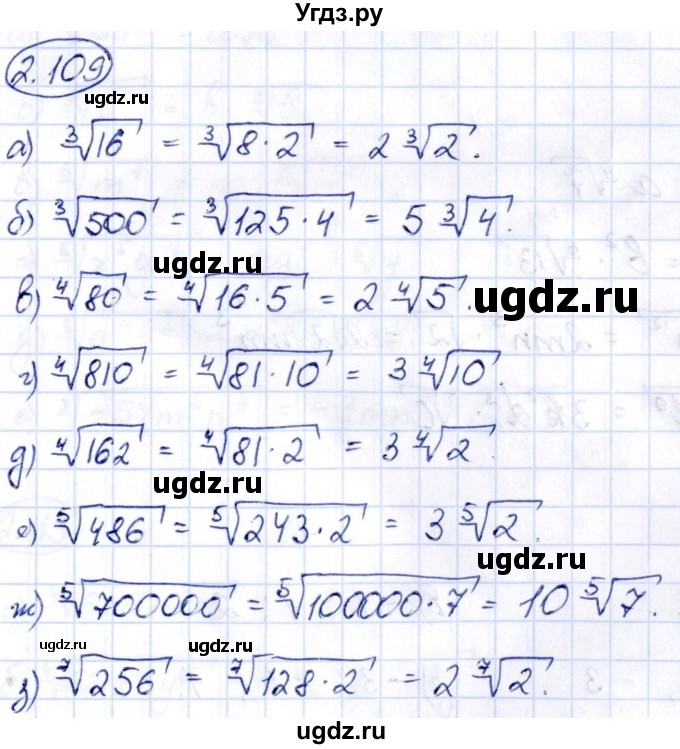 Угдз.ру
2.109
ugdz.ru
а) ∛16 = ∛8·2 = 2∛2.
б) ∛500 = ∛125·4 = 5∛4.
ugdz.ru
в) ∜80 = ∜16·5 = 2∜5.
ugdz.ru
г) ∜810 = ∜81·10 = 3∜10.
ugdz.ru
д) ∜162 = ∜81·2 = 3∜2.
ugdz.ru
е) ⁵√486 = ⁵√243·2 = 3⁵√2.
ugdz.ru
ж) ⁵√700000 = ⁵√100000·7 = 10⁵√7.
ugdz.ru ugdz.ru
з) ⁷√256 = ⁷√128·2 = 2⁷√2.
ugdz.ru